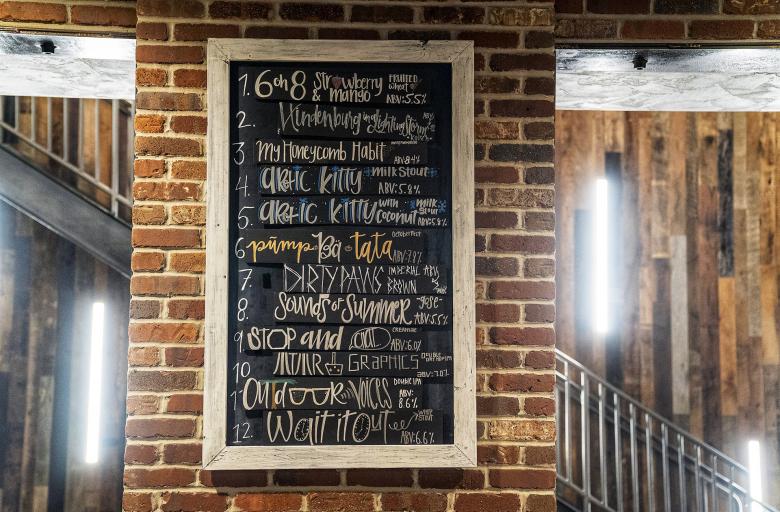 1. 6 on 8 Strawberry & mango FRUITED wheat ABV: 5.5%
2. Hindenburg in a Lightning Storm
3 My Honeycomb Habit ABV: 8.4%
4. arctic kitty milk Stout ABV: 5.8%
5. arctic kitty with coconut milk Stout ABV: 5.8%
6 pump·Ka·tata Octoberfest ABV: 7.8%
7. DIRTY PAWS IMPERIAL BROWN ABV
8. Sounds of Summer gose ABV: 5.5%
9 STOP and ABV: 6.0%
10 GRAPHICS ABV: 7.0%
1 Outdoor VOICES DOUBLE IPA ABV: 8.6%
12. Wait it Out STOUT ABV: 6.6%